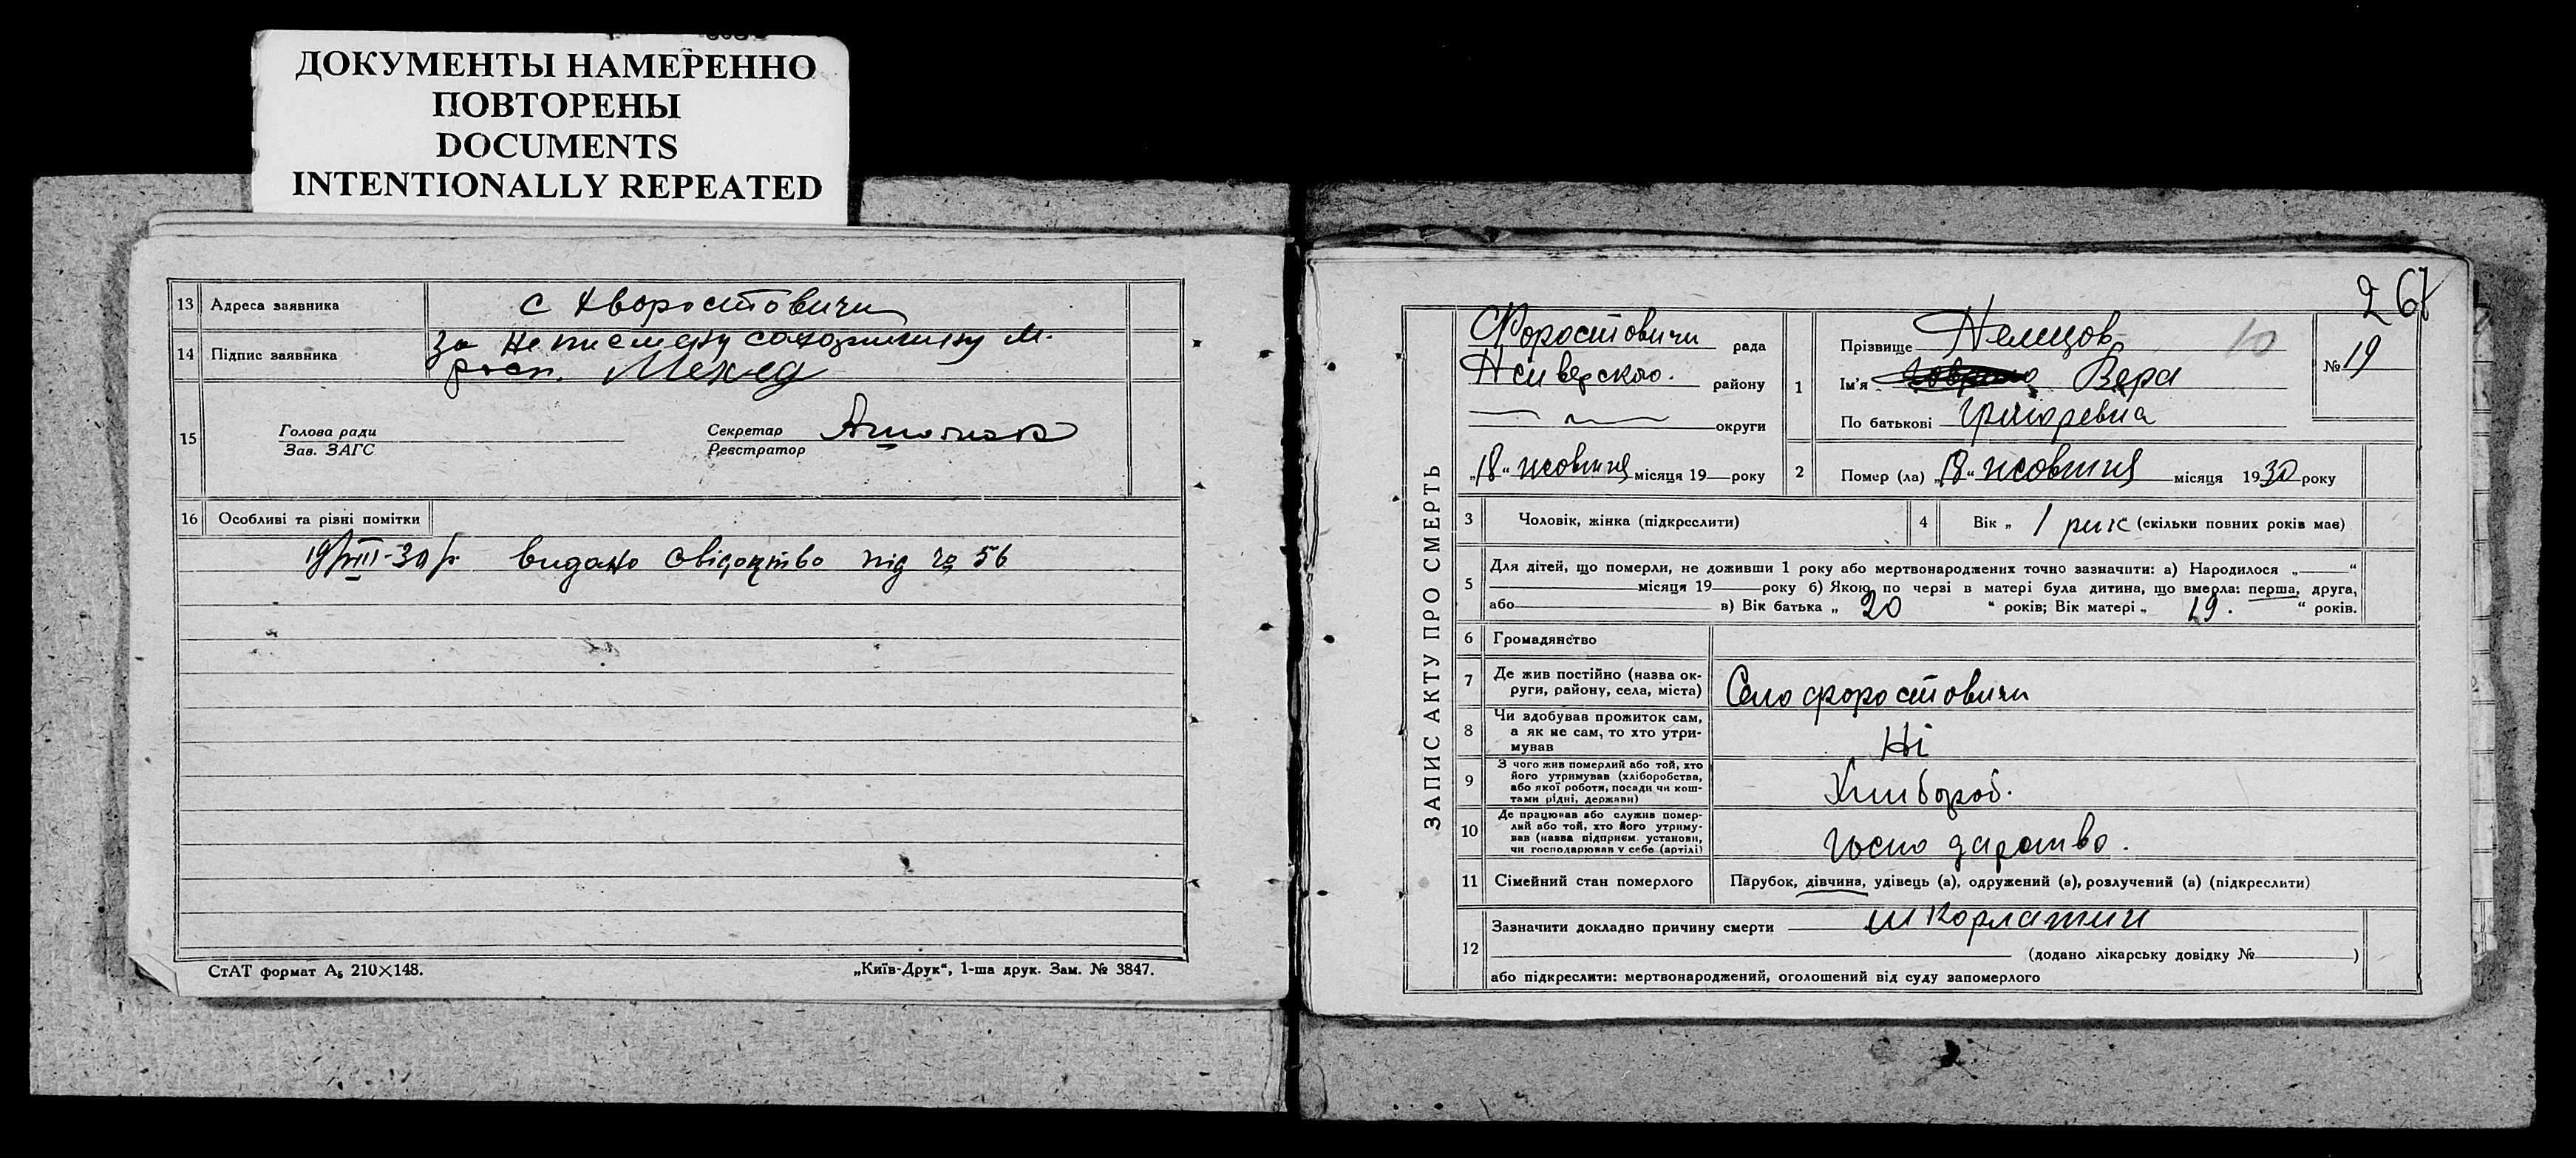 ДОКУМЕНТЫ НАМЕРЕННО
ПОВТОРЕНЫ
DOCUMENTS
INTENTIONALLY REPEATED
13 Адреса заявника с Хворостовичи
14 Підпис заявника за
Мехед
15 Голова ради
Зав. ЗАГС
Секретар
Реєстратор
16 Особливі та різні помітки
видано свідоцтво під № 56
СтАТ формат А₅ 210×148.
„Київ-Друк“, 1-ша друк. Зам. № 3847.
267
ЗАПИС АКТУ ПРО СМЕРТЬ
Форостовичи рада
району
округи
„18“ жовтня місяця 19 року
1 Прізвище Немцов 10
Ім'я Вера
По батькові Григоревна
№ 19
2 Помер (ла) „18“ жовтня місяця 1930 року
3 Чоловік, жінка (підкреслити)
4 Вік „ 1 рик (скільки повних років мав)
5 Для дітей, що померли, не доживши 1 року або мертвонароджених точно зазначити: а) Народилося „ “
місяця 19 року б) Якою по черзі в матері була дитина, що вмерла: перша, друга,
або в) Вік батька „ 20 “ років; Вік матері „ 19. “ років.
6 Громадянство
7 Де жив постійно (назва ок-
руги, району, села, міста) Село форостовичи
8 Чи здобував прожиток сам,
а як не сам, то хто утри-
мував Ні
9 З чого жив померлий або той, хто
його утримував (хліборобства,
або якої роботи, посади чи кош-
тами рідні, держави) Хлибороб.
10 Де працював або служив помер-
лий або той, хто його утриму-
вав (назва підприєм. установи,
чи господарював у себе (артілі) Господарство.
11 Сімейний стан померлого Парубок, дівчина, удівець (а), одружений (а), розлучений (а) (підкреслити)
12 Зазначити докладно причину смерти шкорлатин
(додано лікарську довідку № )
або підкреслити: мертвонароджений, оголошений від суду запомерлого